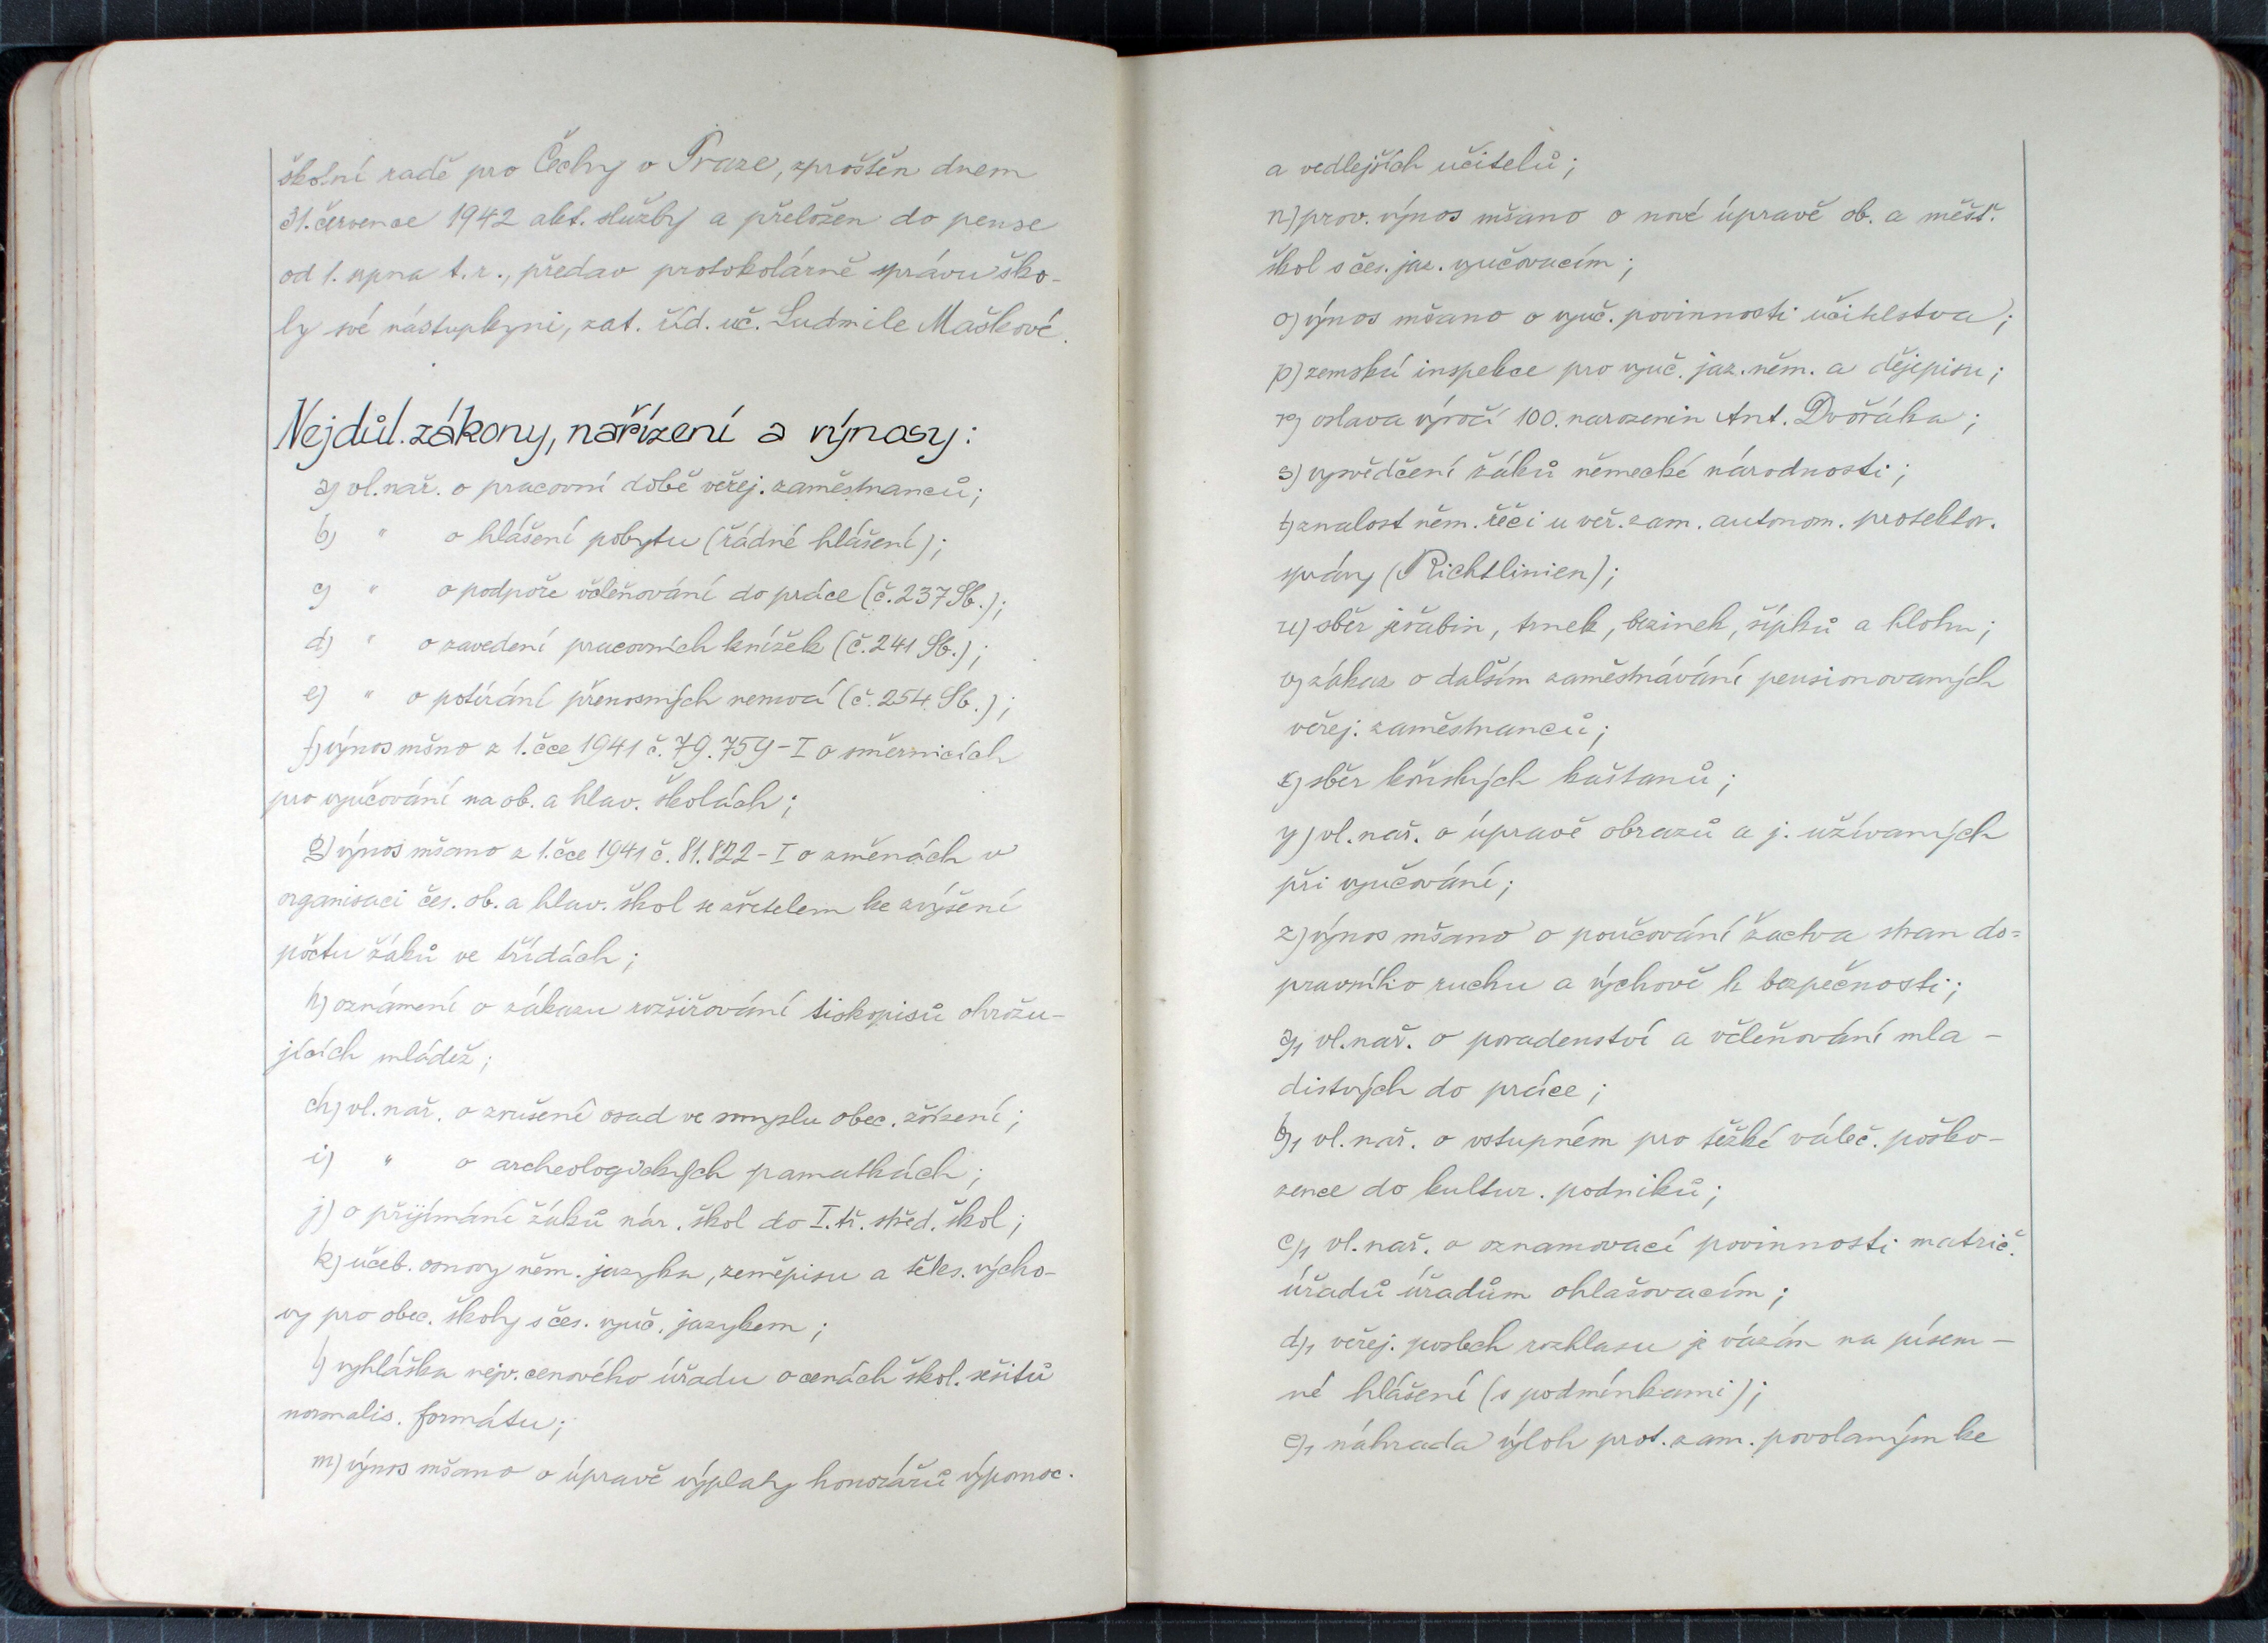 školní radě pro Čechy v Praze, zproštěn dnem
31. července 1942 akt. služby a přeložen do pense
od 1. srpna t. r., předav protokolárně správu ško-
ly své nástupkyni, zat. říd. uč. Ludmile Maškové.
Nejdůl. zákony, nařízení a výnosy:
a) vl. nař. o pracovní době veřej. zaměstnanců;
b) " o hlášení pobytu (řádné hlášení);
c) " o podpoře včleňování do práce (č. 237 Sb.);
d) " o zavedení pracovních knížek (č. 241 Sb.);
e) " o potírání přenosných nemocí (č. 254 Sb.);
f) výnos mšno z 1. čce 1941 č. 79.759-I o směrnicích
pro vyučování na ob. a hlav. školách;
g) výnos mšano z 1. čce 1941 č. 81.822-I o změnách v
organisaci čes. ob. a hlav. škol se zřetelem ke zvýšení
počtu žáků ve třídách;
h) oznámení o zákazu rozšiřování tiskopisů ohrožu-
jících mládež;
ch) vl. nař. o zrušení osad ve smyslu obec. zřízení;
i) " o archeologických památkách;
j) o přijímání žáků nár. škol do I. tř. střed. škol;
k) učeb. osnovy něm. jazyka, zeměpisu a těles. výcho-
vy pro obec. školy s čes. vyuč. jazykem;
l) vyhláška nejv. cenového úřadu o cenách škol. sešitů
normalis. formátu;
m) výnos mšano o úpravě výplaty honorářů výpomoc.
a vedlejších učitelů;
n) prov. výnos mšano o nové úpravě ob. a měšť.
škol s čes. jaz. vyučovacím;
o) výnos mšano o vyuč. povinnosti učitelstva;
p) zemská inspekce pro vyuč. jaz. něm. a dějepisu;
r) oslava výročí 100. narozenin Ant. Dvořáka;
s) vysvědčení žáků německé národnosti;
t) znalost něm. řeči u veř. zam. autonom. protektor.
správy (Richtlinien);
u) sběr jeřabin, trnek, bezinek, šípků a hlohu;
v) zákaz o dalším zaměstnávání pensionovaných
veřej. zaměstnanců;
x) sběr koňských kaštanů;
y) vl. nař. o úpravě obrazů a j. užívaných
při vyučování;
z) výnos mšano o poučování žactva stran do=
pravního ruchu a výchově k bezpečnosti;
a)₁ vl. nař. o poradenství a včleňování mla-
distvých do práce;
b)₁ vl. nař. o vstupném pro těžké váleč. poško-
zence do kultur. podniků;
c)₁ vl. nař. o oznamovací povinnosti matrič.
úřadů úřadům ohlašovacím;
d)₁ veřej. poslech rozhlasu je vázán na písem-
né hlášení (s podmínkami);
e)₁ náhrada výloh prot. zam. povolaným ke